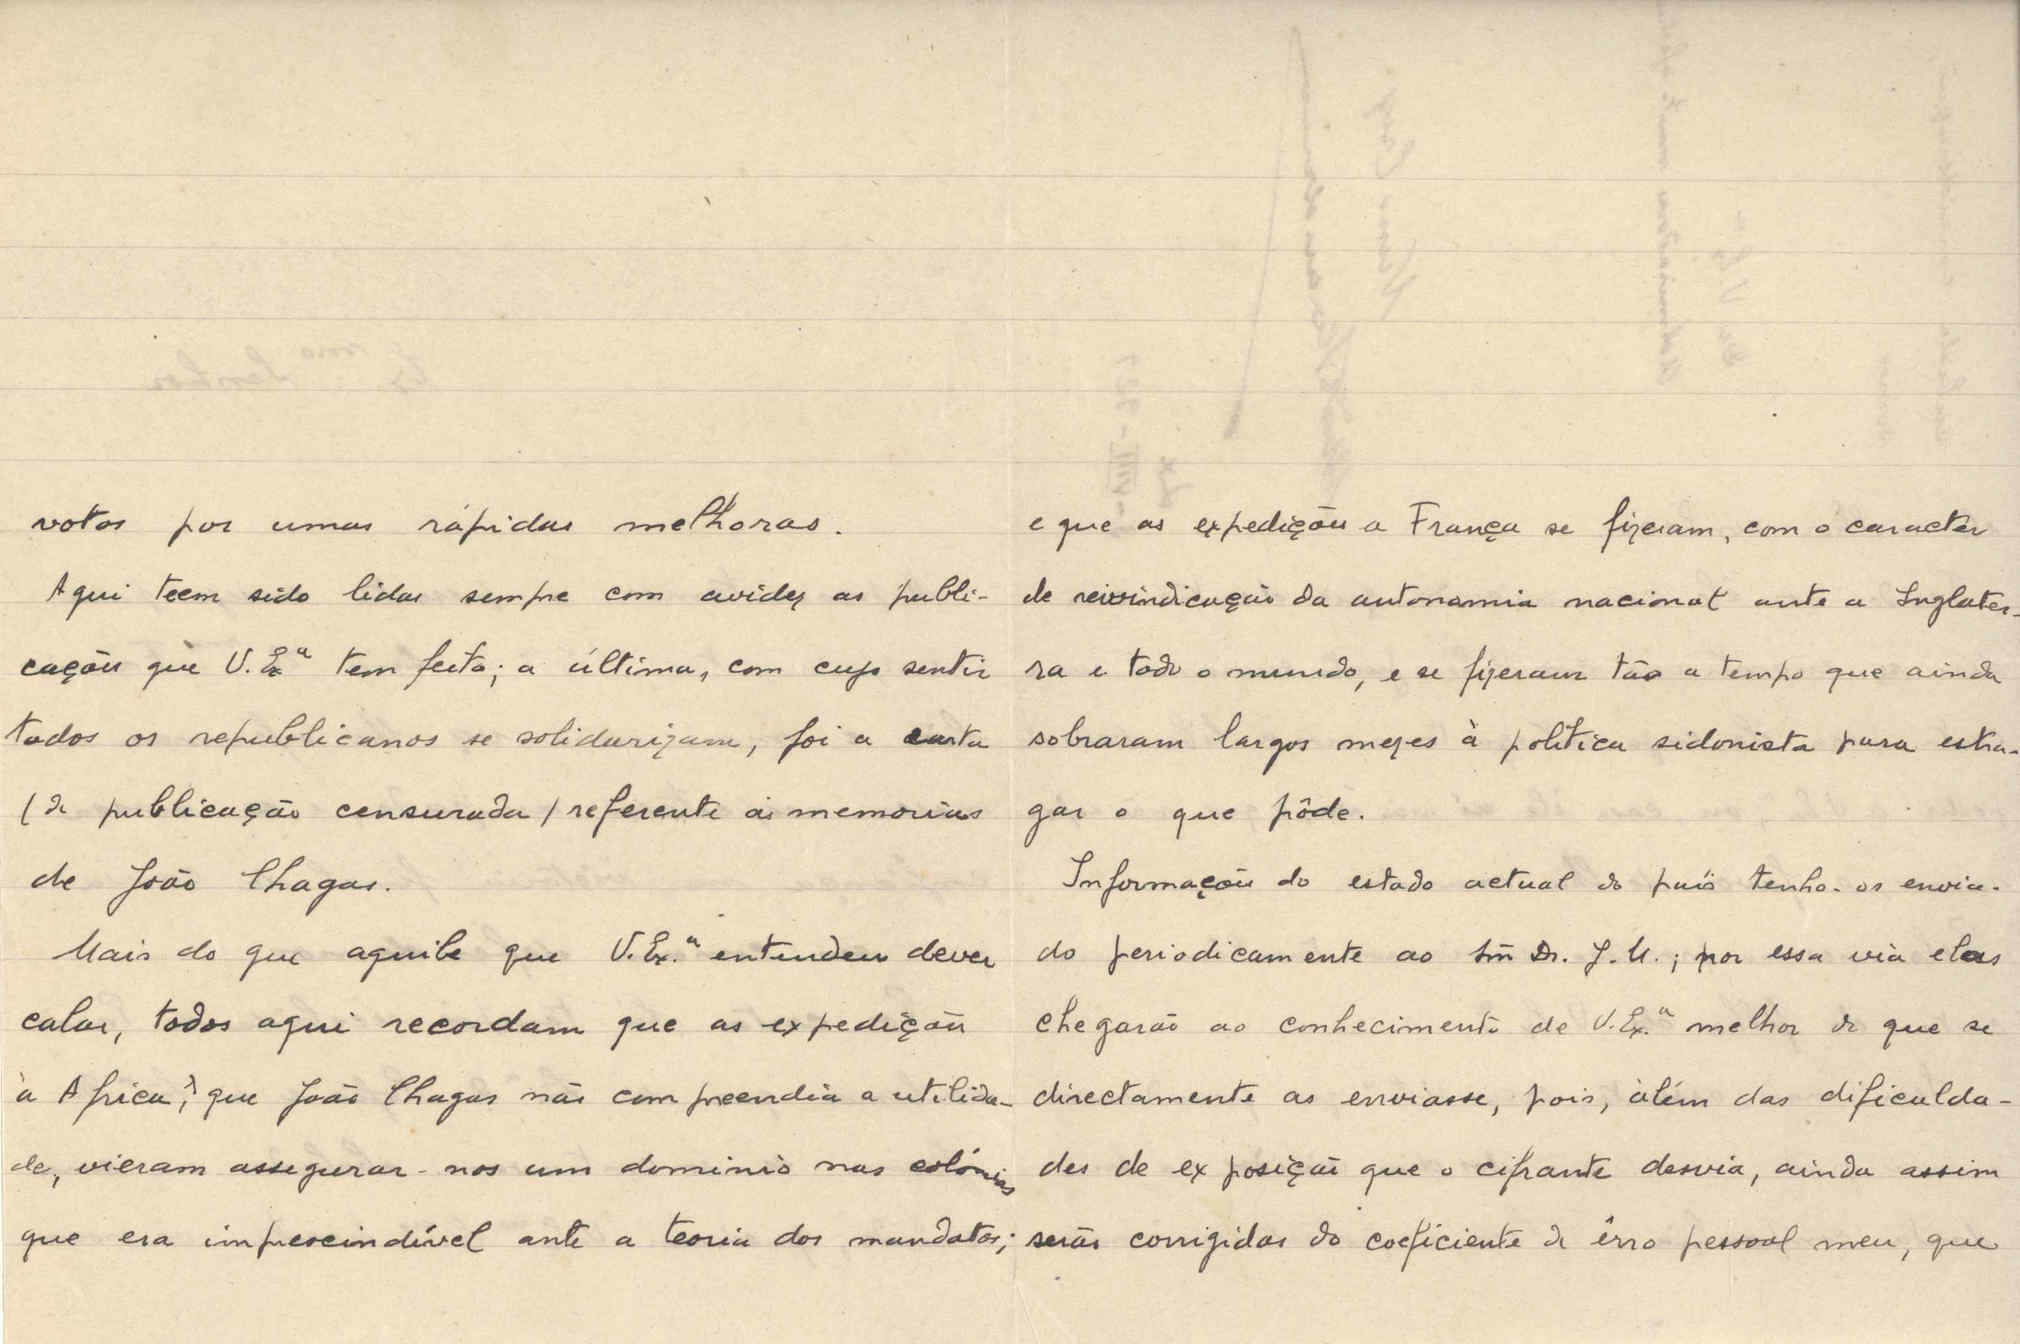 votos por umas rápidas melhoras.
Aqui teem sido lidas sempre com avidez as publi-
cações que V. Ex.ª tem feito; a última, com cujo sentir
todos os republicanos se solidarizam, foi a carta
(de publicação censurada) referente ás memorias
de João Chagas.
Mais do que aquilo que V. Ex.ª entendeu dever
calar, todos aqui recordam que as expedições
à Africa, que João Chagas não compreendia a utilida-
de, vieram assegurar-nos um dominio nas colónias
que era imprescindível ante a teoria dos mandatos;
e que as expedições a França se fizeram, com o caracter
de reivindicação da autonomia nacional ante a Inglater-
ra e todo o mundo, e se fizeram tão a tempo que ainda
sobraram largos mezes à politica sidonista para estra-
gar o que pôde.
Informações do estado actual do país tenho-as envia-
do periodicamente ao Snr. Dr. J. M.; por essa via elas
chegarão ao conhecimento de V. Ex.ª melhor do que se
directamente as enviasse, pois, àlém das dificulda-
des de exposição que o cifrante desvia, ainda assim
serão corrigidas do coeficiente de êrro pessoal meu, que